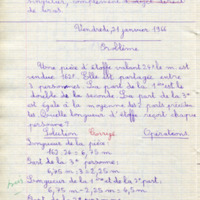 singulier, complément d'objet direct
de bras.
Vendredi 21 janvier 1966
Problème
Une pièce d'étoffe valant 24 le m est
vendue 162F. Elle est partagée entre
3 personnes. La part de la 1ère est le
double de la seconde. La part de la 3e
est égale à la moyenne des 2 parts précéden
tes. Quelle longueur d'étoffe reçoit chaque
personne ?
Solution Corrigé Opérations
Longueur de la pièce :
162 : 24 = 6,75 m
Part de la 3e personne :
6,75 m : 3 = 2,25 m
Longueur de la 1ère et de la 2e part :
6,75 m - 2,25 m = 4,5 m
Part de la 2e personne :